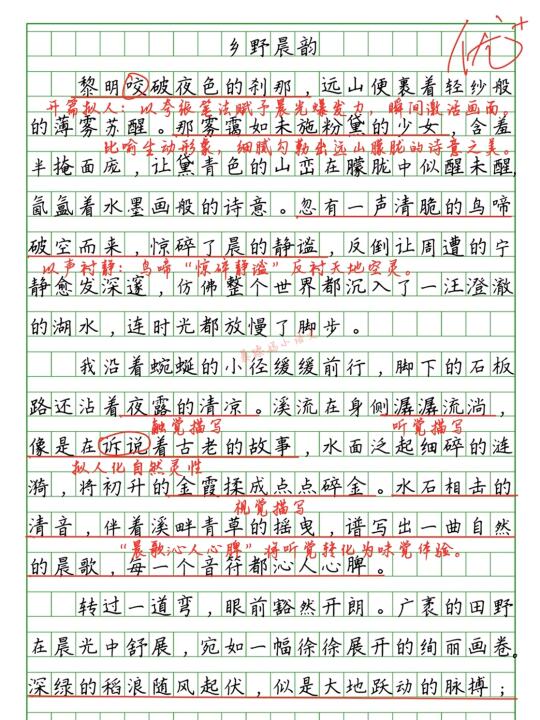 优+
乡野晨韵
黎明咬破夜色的刹那，远山便裹着轻纱般
开篇拟人：以夸张笔法赋予晨光爆发力，瞬间激活画面。
的薄雾苏醒。那雾霭如未施粉黛的少女，含羞
比喻生动形象，细腻勾勒出远山朦胧的诗意之美。
半掩面庞，让黛青色的山峦在朦胧中似醒未醒，
氤氲着水墨画般的诗意。忽有一声清脆的鸟啼
破空而来，惊碎了晨的静谧，反倒让周遭的宁
以声衬静：鸟啼“惊碎静谧”反衬天地空灵。
静愈发深邃，仿佛整个世界都沉入了一汪澄澈
的湖水，连时光都放慢了脚步。
我沿着蜿蜒的小径缓缓前行，脚下的石板
路还沾着夜露的清凉。溪流在身侧潺潺流淌，
触觉描写 听觉描写
像是在诉说着古老的故事，水面泛起细碎的涟
拟人化自然灵性
漪，将初升的金霞揉成点点碎金。水石相击的
视觉描写
清音，伴着溪畔青草的摇曳，谱写出一曲自然
“晨歌沁人心脾”将听觉转化为味觉体验。
的晨歌，每一个音符都沁人心脾。
转过一道弯，眼前豁然开朗。广袤的田野
在晨光中舒展，宛如一幅徐徐展开的绚丽画卷。
深绿的稻浪随风起伏，似是大地跃动的脉搏；